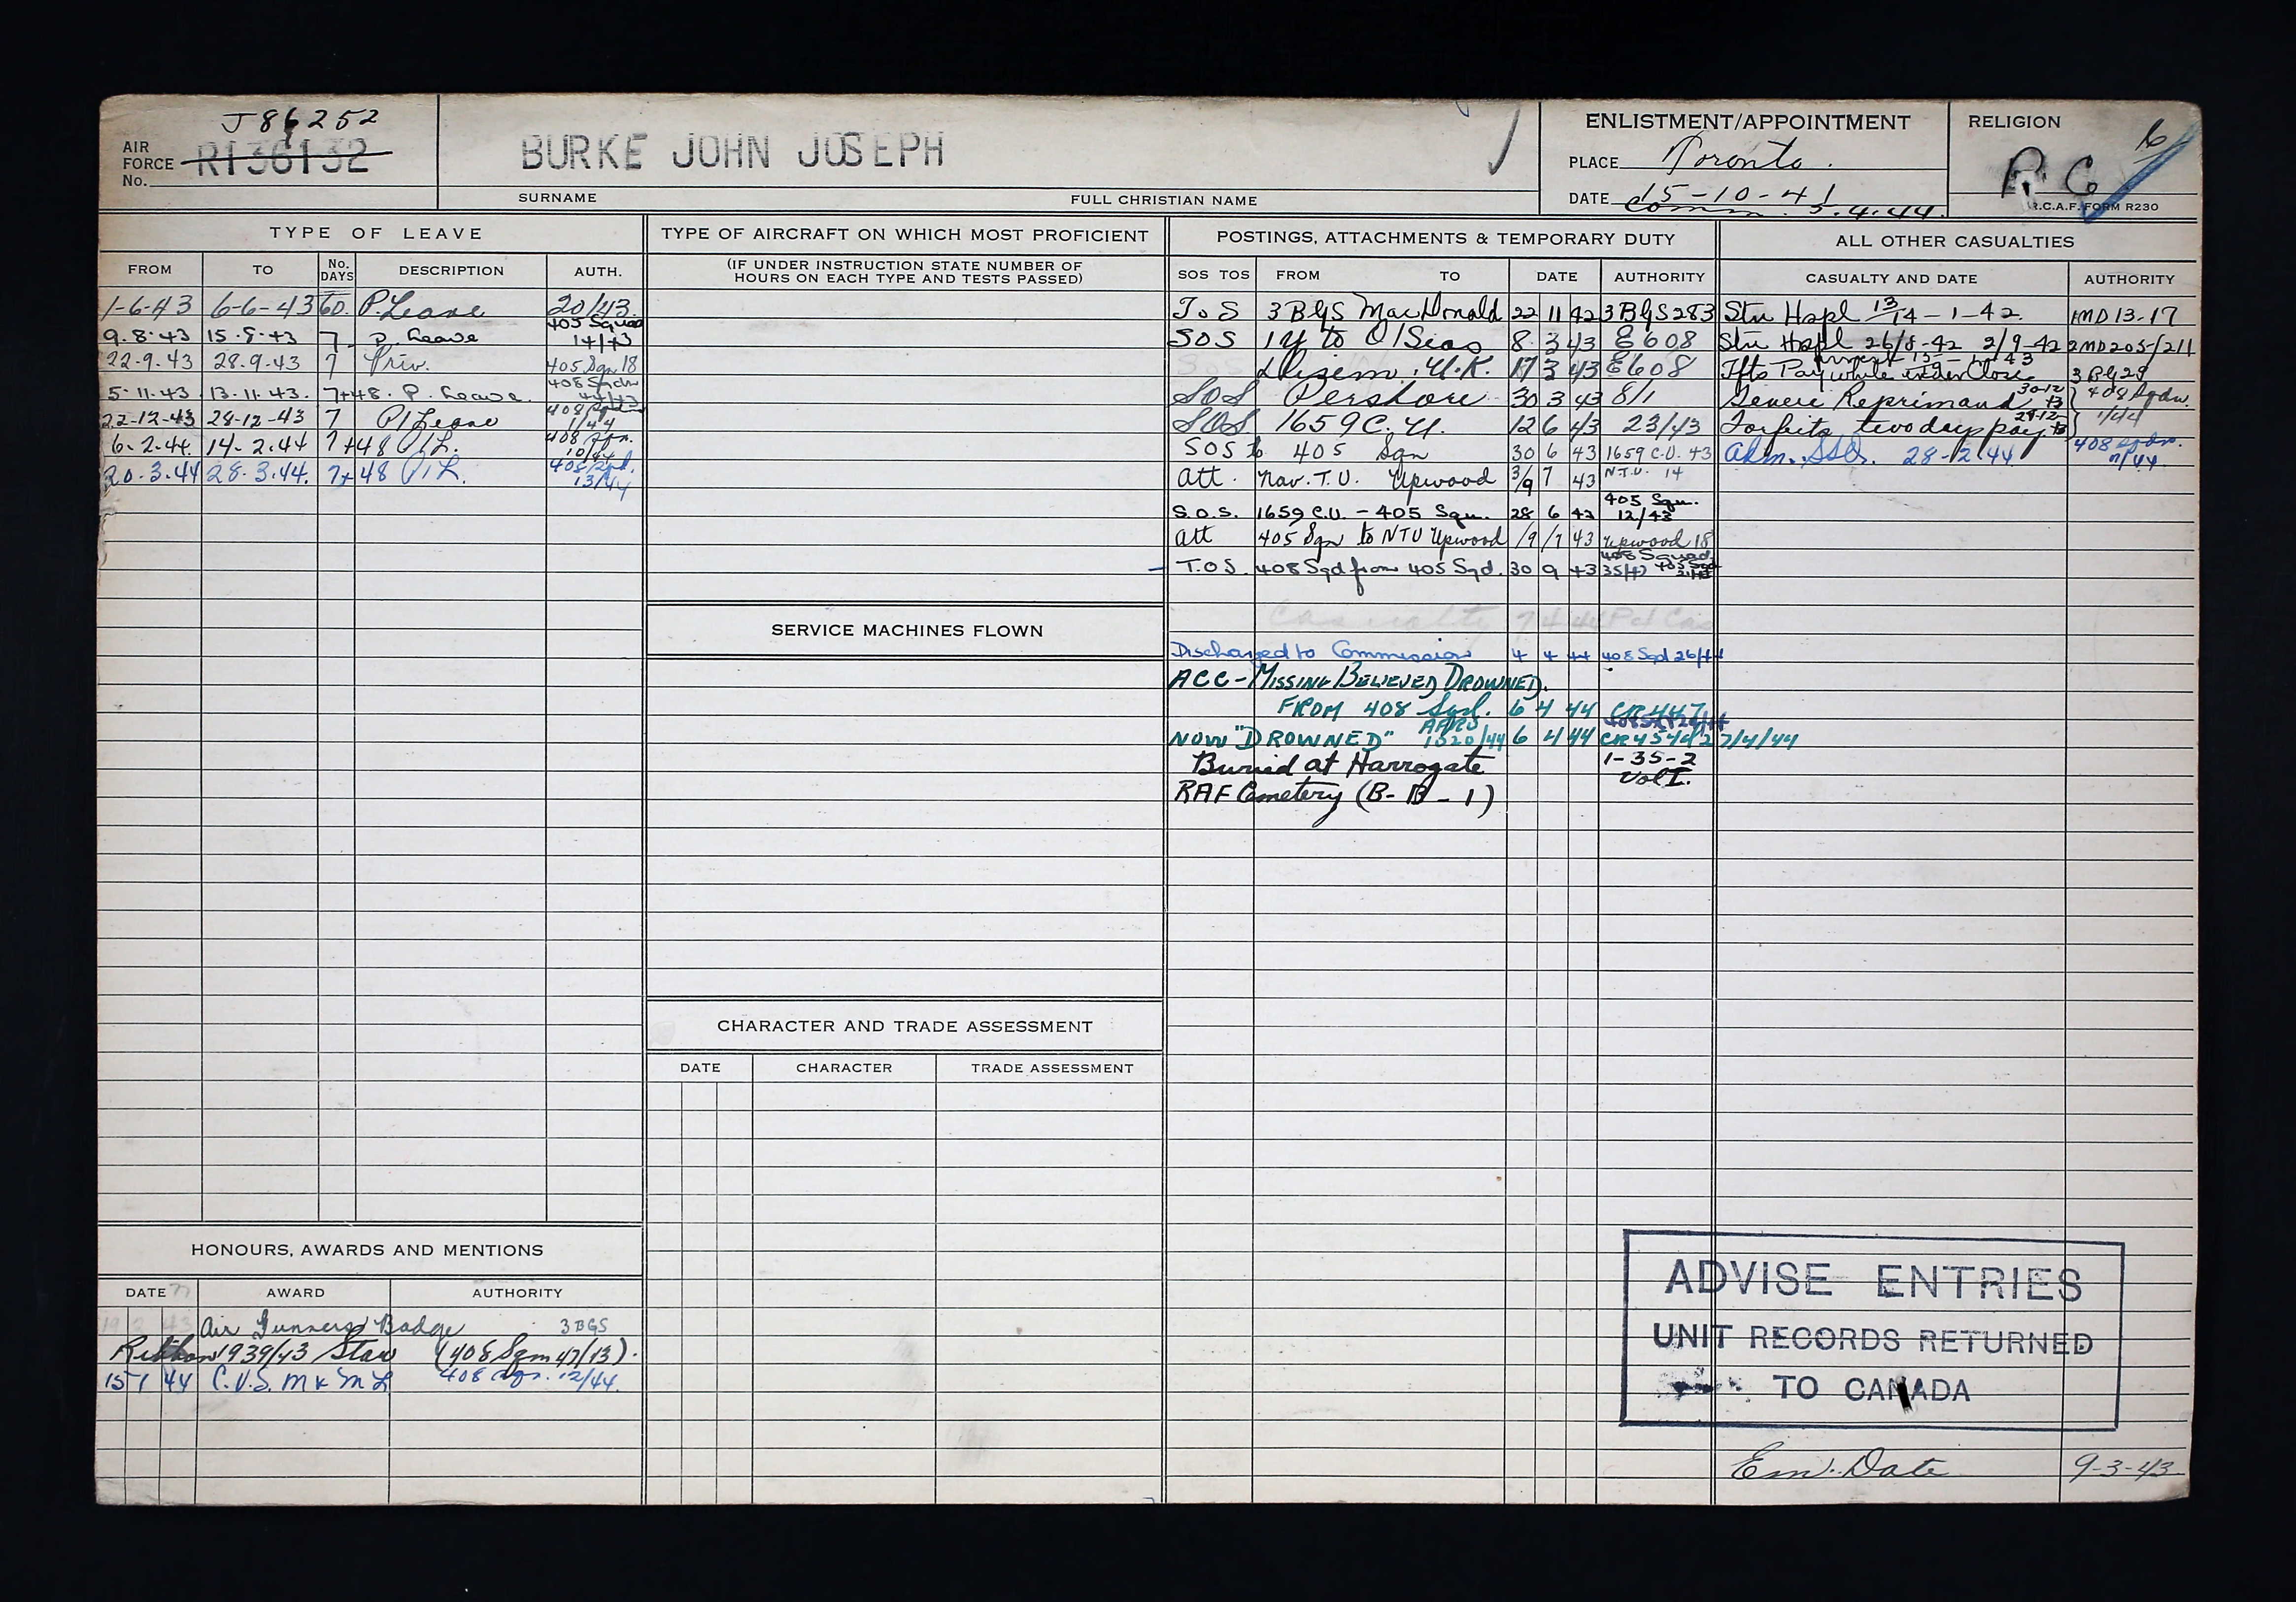 J86252
AIR FORCE No. R136132
BURKE JOHN JOSEPH
SURNAME FULL CHRISTIAN NAME
ENLISTMENT/APPOINTMENT
PLACE Toronto.
DATE 15-10-41
Comm. 5.4.44.
RELIGION
RC
16
R.C.A.F. FORM R230
TYPE OF LEAVE
FROM TO No. DAYS DESCRIPTION AUTH.
1-6-43 6-6-43 60. P. Leave 20/43.
9.8.43 15.8.43 7 P. Leave 405 Squad 14/43
22-9.43 28.9.43 7 Priv. 405 Sqn 18
5-11.43 13.11.43. 7+48. P. Leave. 408 Sqdn 44/43
22-12-43 28-12-43 7 P/Leave 408 Sqdn 1/44
6.2.44. 14.2.44 7+48 P/L. 408 Sqn. 10/44
20.3.44 28.3.44. 7+48 P/L. 408 Sqd. 13/44
TYPE OF AIRCRAFT ON WHICH MOST PROFICIENT
(IF UNDER INSTRUCTION STATE NUMBER OF
HOURS ON EACH TYPE AND TESTS PASSED)
SERVICE MACHINES FLOWN
CHARACTER AND TRADE ASSESSMENT
DATE CHARACTER TRADE ASSESSMENT
POSTINGS, ATTACHMENTS & TEMPORARY DUTY
SOS TOS FROM TO DATE AUTHORITY
ToS 3 B&GS MacDonald 22 11 42 3 B&GS 283
SOS 1Y to O/Seas 8 3 43 E608
Disem. U.K. 17 3 43 E608
SOS Pershore 30 3 43 8/1
SOS 1659 C.U. 12 6 43 23/43
SOS to 405 Sqn 30 6 43 1659 C.U. 43
Att. Nav. T.U. Upwood 3/9 7 43 N.T.U. 14
S.O.S. 1659 C.U. - 405 Squ. 28 6 43 405 Squ. 12/43
Att 405 Sqn to NTU Upwood /9 /7 43 Upwood 18
T.O.S. 408 Sqd from 405 Sqd. 30 9 43 408 Squad. 35/43 405 Sqd
Casualty 7 4 44
Discharged to Commission 4 4 44 408 Sqd 26/44
ACC - MISSING BELIEVED DROWNED.
FROM 408 Sqd. 6 4 44 CR447
NOW "DROWNED" AFRO 1020/44 6 4 44 CR454 d 27/4/44
Buried at Harrogate 1-35-2
RAF Cemetery (B-B-1) Vol I.
ALL OTHER CASUALTIES
CASUALTY AND DATE AUTHORITY
Stn Hspl 13/14-1-42. 1MD 13-17
Stn Hspl 26/8-42 2/9-42 2MD 205-/211
Ffts Pay while under Close arrest 3 B&G 29
Severe Reprimand 30-12 43 408 Sqdn.
Forfeits two days pay 28-12 43 1/44
Adm. SSQ. 28-2-44. 408 Sqdn. 11/44
HONOURS, AWARDS AND MENTIONS
DATE AWARD AUTHORITY
19 2 43 Air Gunners Badge 3 BGS
Ribbon 1939/43 Star (408 Sqn 47/13).
15 1 44 C.V.S.M & M.L 408 Sqn. 12/44.
ADVISE ENTRIES
UNIT RECORDS RETURNED
TO CANADA
Em. Date 9-3-43